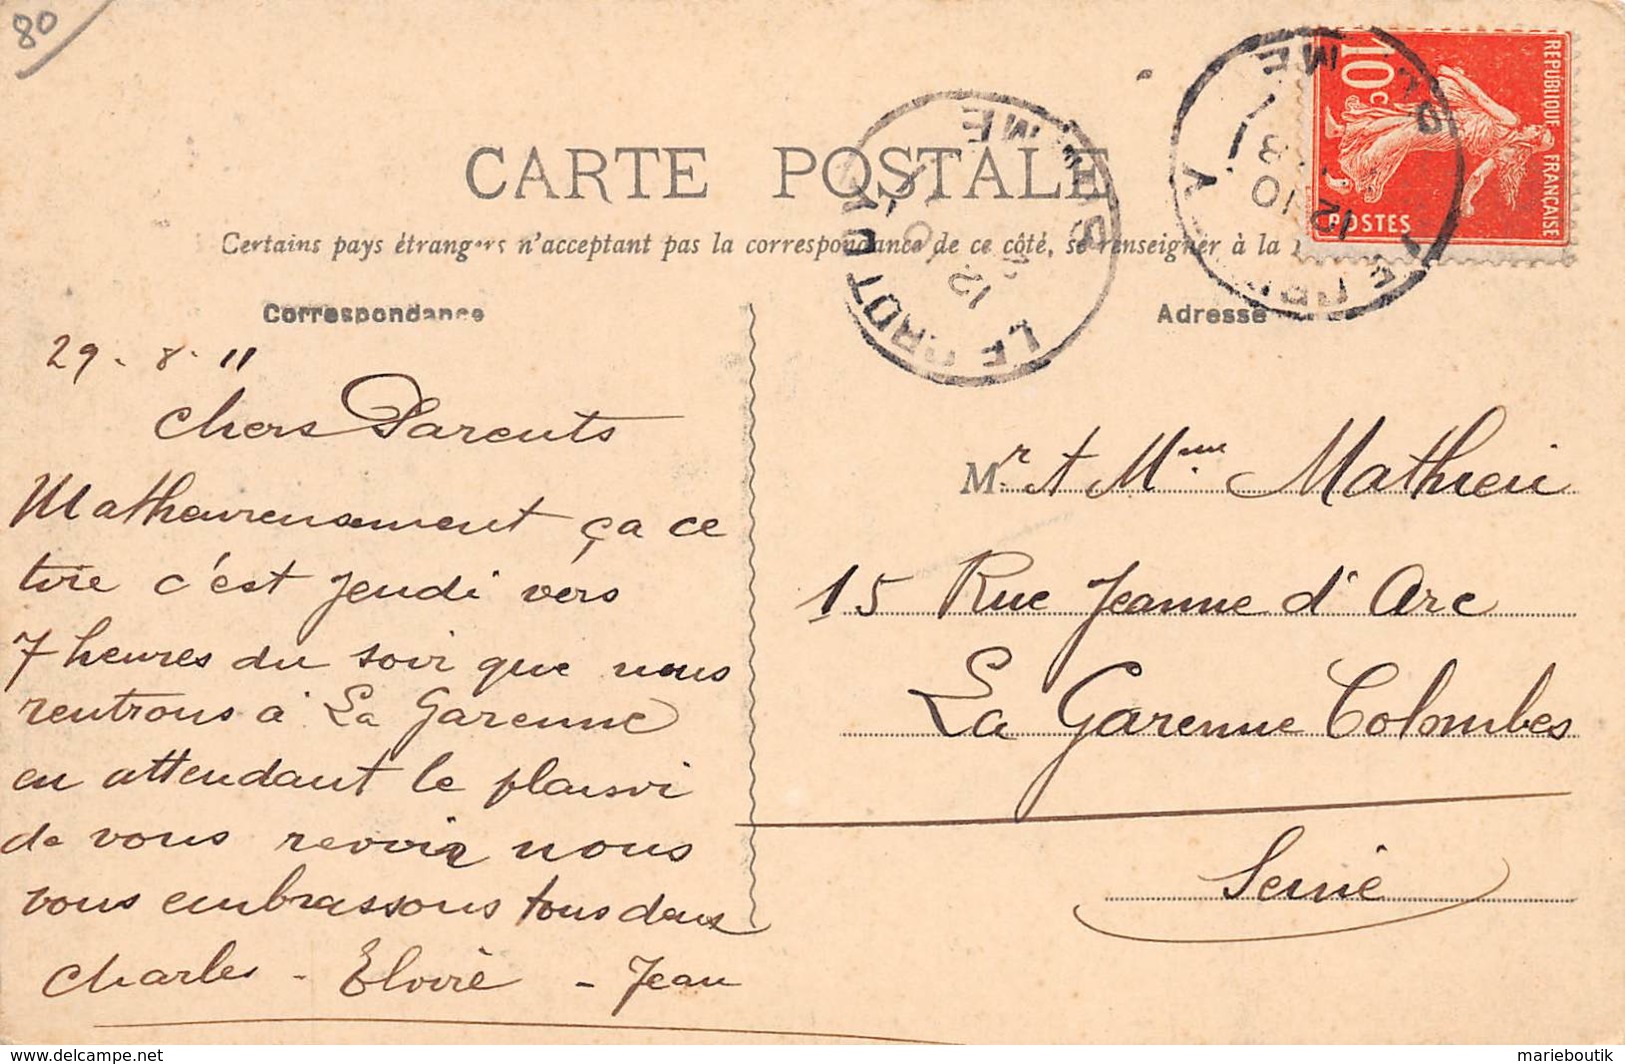 80
CARTE POSTALE
Certains pays étrangers n'acceptant pas la correspondance de ce côté, se renseigner à la
REPUBLIQUE FRANÇAISE
10c
POSTES
LE CROTOY
SOMME
12
Correspondance
Adresse
29 - 8 - 11
Chers Parents
Malheureusement ça ce
tire c'est Jeudi vers
7 heures du soir que nous
rentrons à La Garenne
en attendant le plaisir
de vous revoir nous
vous embrassons tous deux
Charles - Elvire - Jean
Mr et Mme Mathieu
15 Rue Jeanne d'Arc
La Garenne Colombes
Seine
www.delcampe.net
marieboutik